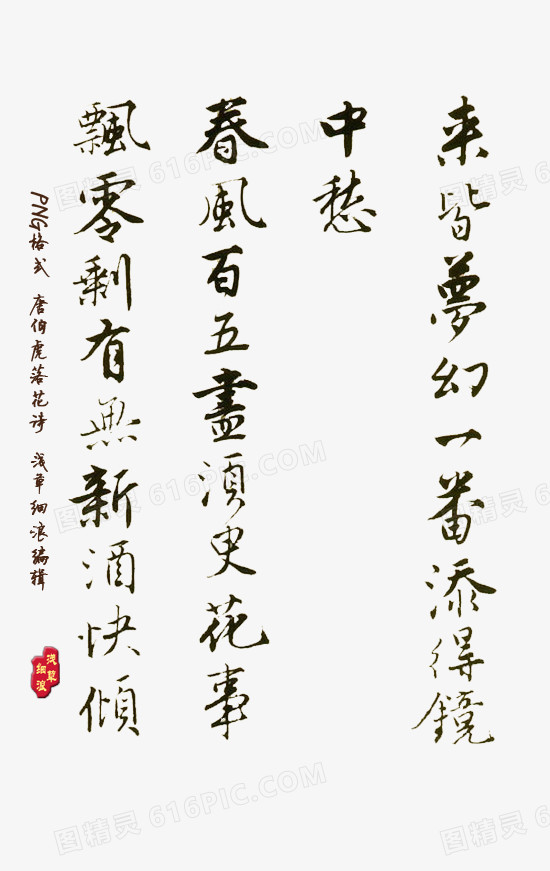 来皆夢幻一番添得鏡
中愁
春風百五盡須史花事
飄零剩有無新酒快傾
PNG格式 唐伯虎落花诗 浅草细浪编辑
浅草
细浪
图精灵 616PIC.COM